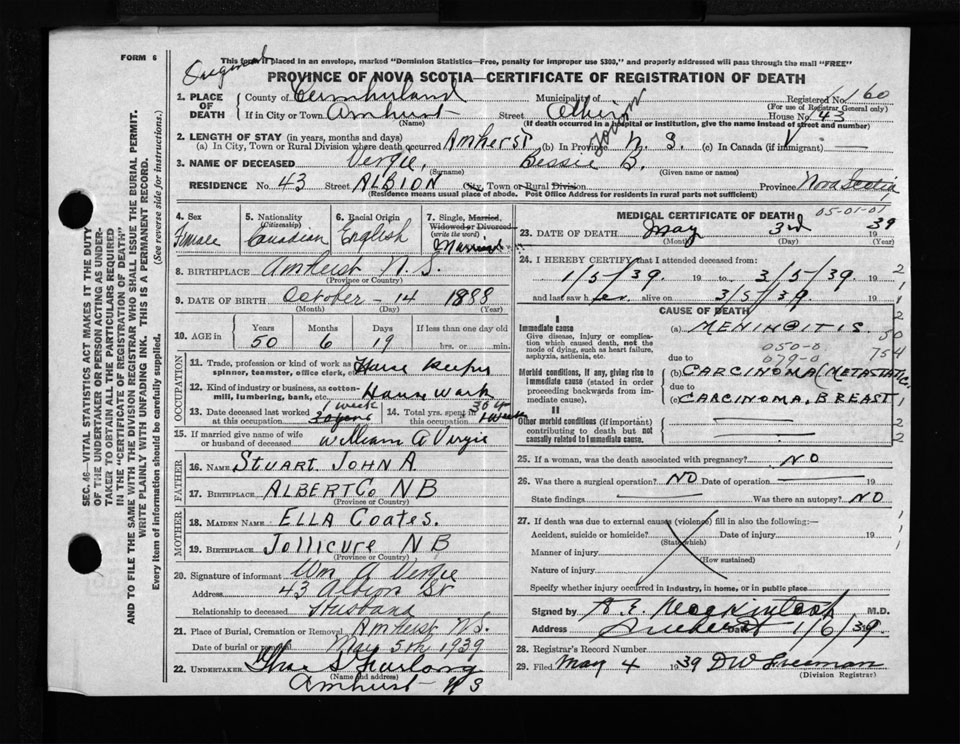 FORM 6
Original
This form if placed in an envelope, marked "Dominion Statistics—Free, penalty for improper use $300," and properly addressed will pass through the mail "FREE"
PROVINCE OF NOVA SCOTIA—CERTIFICATE OF REGISTRATION OF DEATH
1. PLACE OF DEATH County of Cumberland Municipality of Registered No. 160
(For use of Registrar General only)
If in City or Town Amherst Street Albion House No. 43
(Name) (If death occurred in a hospital or institution, give the name instead of street and number)
2. LENGTH OF STAY (in years, months and days)
(a) In City, Town or Rural Division where death occurred Amherst (b) In Province N. S. (c) In Canada (if immigrant) —
3. NAME OF DECEASED Vergie, Bessie B.
(Surname) (Given name or names)
RESIDENCE No. 43 Street ALBION City, Town or Rural Division Province Nova Scotia
(Residence means usual place of abode. Post Office Address for residents in rural parts not sufficient)
4. Sex Female
5. Nationality (Citizenship) Canadian
6. Racial Origin English
7. Single, Married, Widowed or Divorced (write the word) Married
8. BIRTHPLACE Amherst N. S.
(Province or Country)
9. DATE OF BIRTH October - 14 1888
(Month) (Day) (Year)
10. AGE in Years 50 Months 6 Days 19 If less than one day old hrs. or min.
OCCUPATION
11. Trade, profession or kind of work as spinner, teamster, office clerk, etc. House Keeper
12. Kind of industry or business, as cotton-mill, lumbering, bank, etc. House work
13. Date deceased last worked at this occupation 1 week 30 years
14. Total yrs. spent in this occupation 30 yrs 1 week
15. If married give name of wife or husband of deceased William A Vergie
FATHER
16. NAME STUART JOHN A.
17. BIRTHPLACE ALBERT Co N B
(Province or Country)
MOTHER
18. MAIDEN NAME ELLA COATES.
19. BIRTHPLACE JOLLICURE N. B
(Province or Country)
20. Signature of informant Wm A Vergie
Address 43 Albion St
Relationship to deceased Husband
21. Place of Burial, Cremation or Removal Amherst N.S.
Date of burial or removal May 5th 1939
22. UNDERTAKER Chas S Furlong
(Name and address)
Amherst N S
MEDICAL CERTIFICATE OF DEATH
05-01-01
23. DATE OF DEATH May 3rd 1939
(Month) (Day) (Year)
24. I HEREBY CERTIFY that I attended deceased from:
1/5/39. 19 to 3/5/39. 19
and last saw her alive on 3/5/39. 19
CAUSE OF DEATH
I
Immediate cause
Give disease, injury or complication which caused death, not the mode of dying, such as heart failure, asphyxia, asthenia, etc.
(a) MENINGITIS.
050-0
due to 079-0
Morbid conditions, if any, giving rise to immediate cause (stated in order proceeding backwards from immediate cause).
(b) CARCINOMA (METASTATIC)
due to
(c) CARCINOMA, BREAST
II
Other morbid conditions (if important) contributing to death but not causally related to immediate cause.
50
754
25. If a woman, was the death associated with pregnancy? NO
26. Was there a surgical operation? NO Date of operation 19
State findings Was there an autopsy? NO
27. If death was due to external causes (violence) fill in also the following:—
Accident, suicide or homicide? Date of injury 19
(State which)
Manner of injury
(How sustained)
Nature of injury
Specify whether injury occurred in industry, in home, or in public place
Signed by A. E. Mackintosh M.D.
Address Amherst Date 1/6/39.
28. Registrar's Record Number
29. Filed May 4 1939 D W Freeman
(Division Registrar)
SEC. 46—VITAL STATISTICS ACT MAKES IT THE DUTY
OF THE UNDERTAKER OR PERSON ACTING AS UNDER-
TAKER TO OBTAIN ALL THE PARTICULARS REQUIRED
IN THE "CERTIFICATE OF REGISTRATION OF DEATH"
AND TO FILE THE SAME WITH THE DIVISION REGISTRAR WHO SHALL ISSUE THE BURIAL PERMIT.
WRITE PLAINLY WITH UNFADING INK. THIS IS A PERMANENT RECORD.
Every item of information should be carefully supplied. (See reverse side for instructions.)